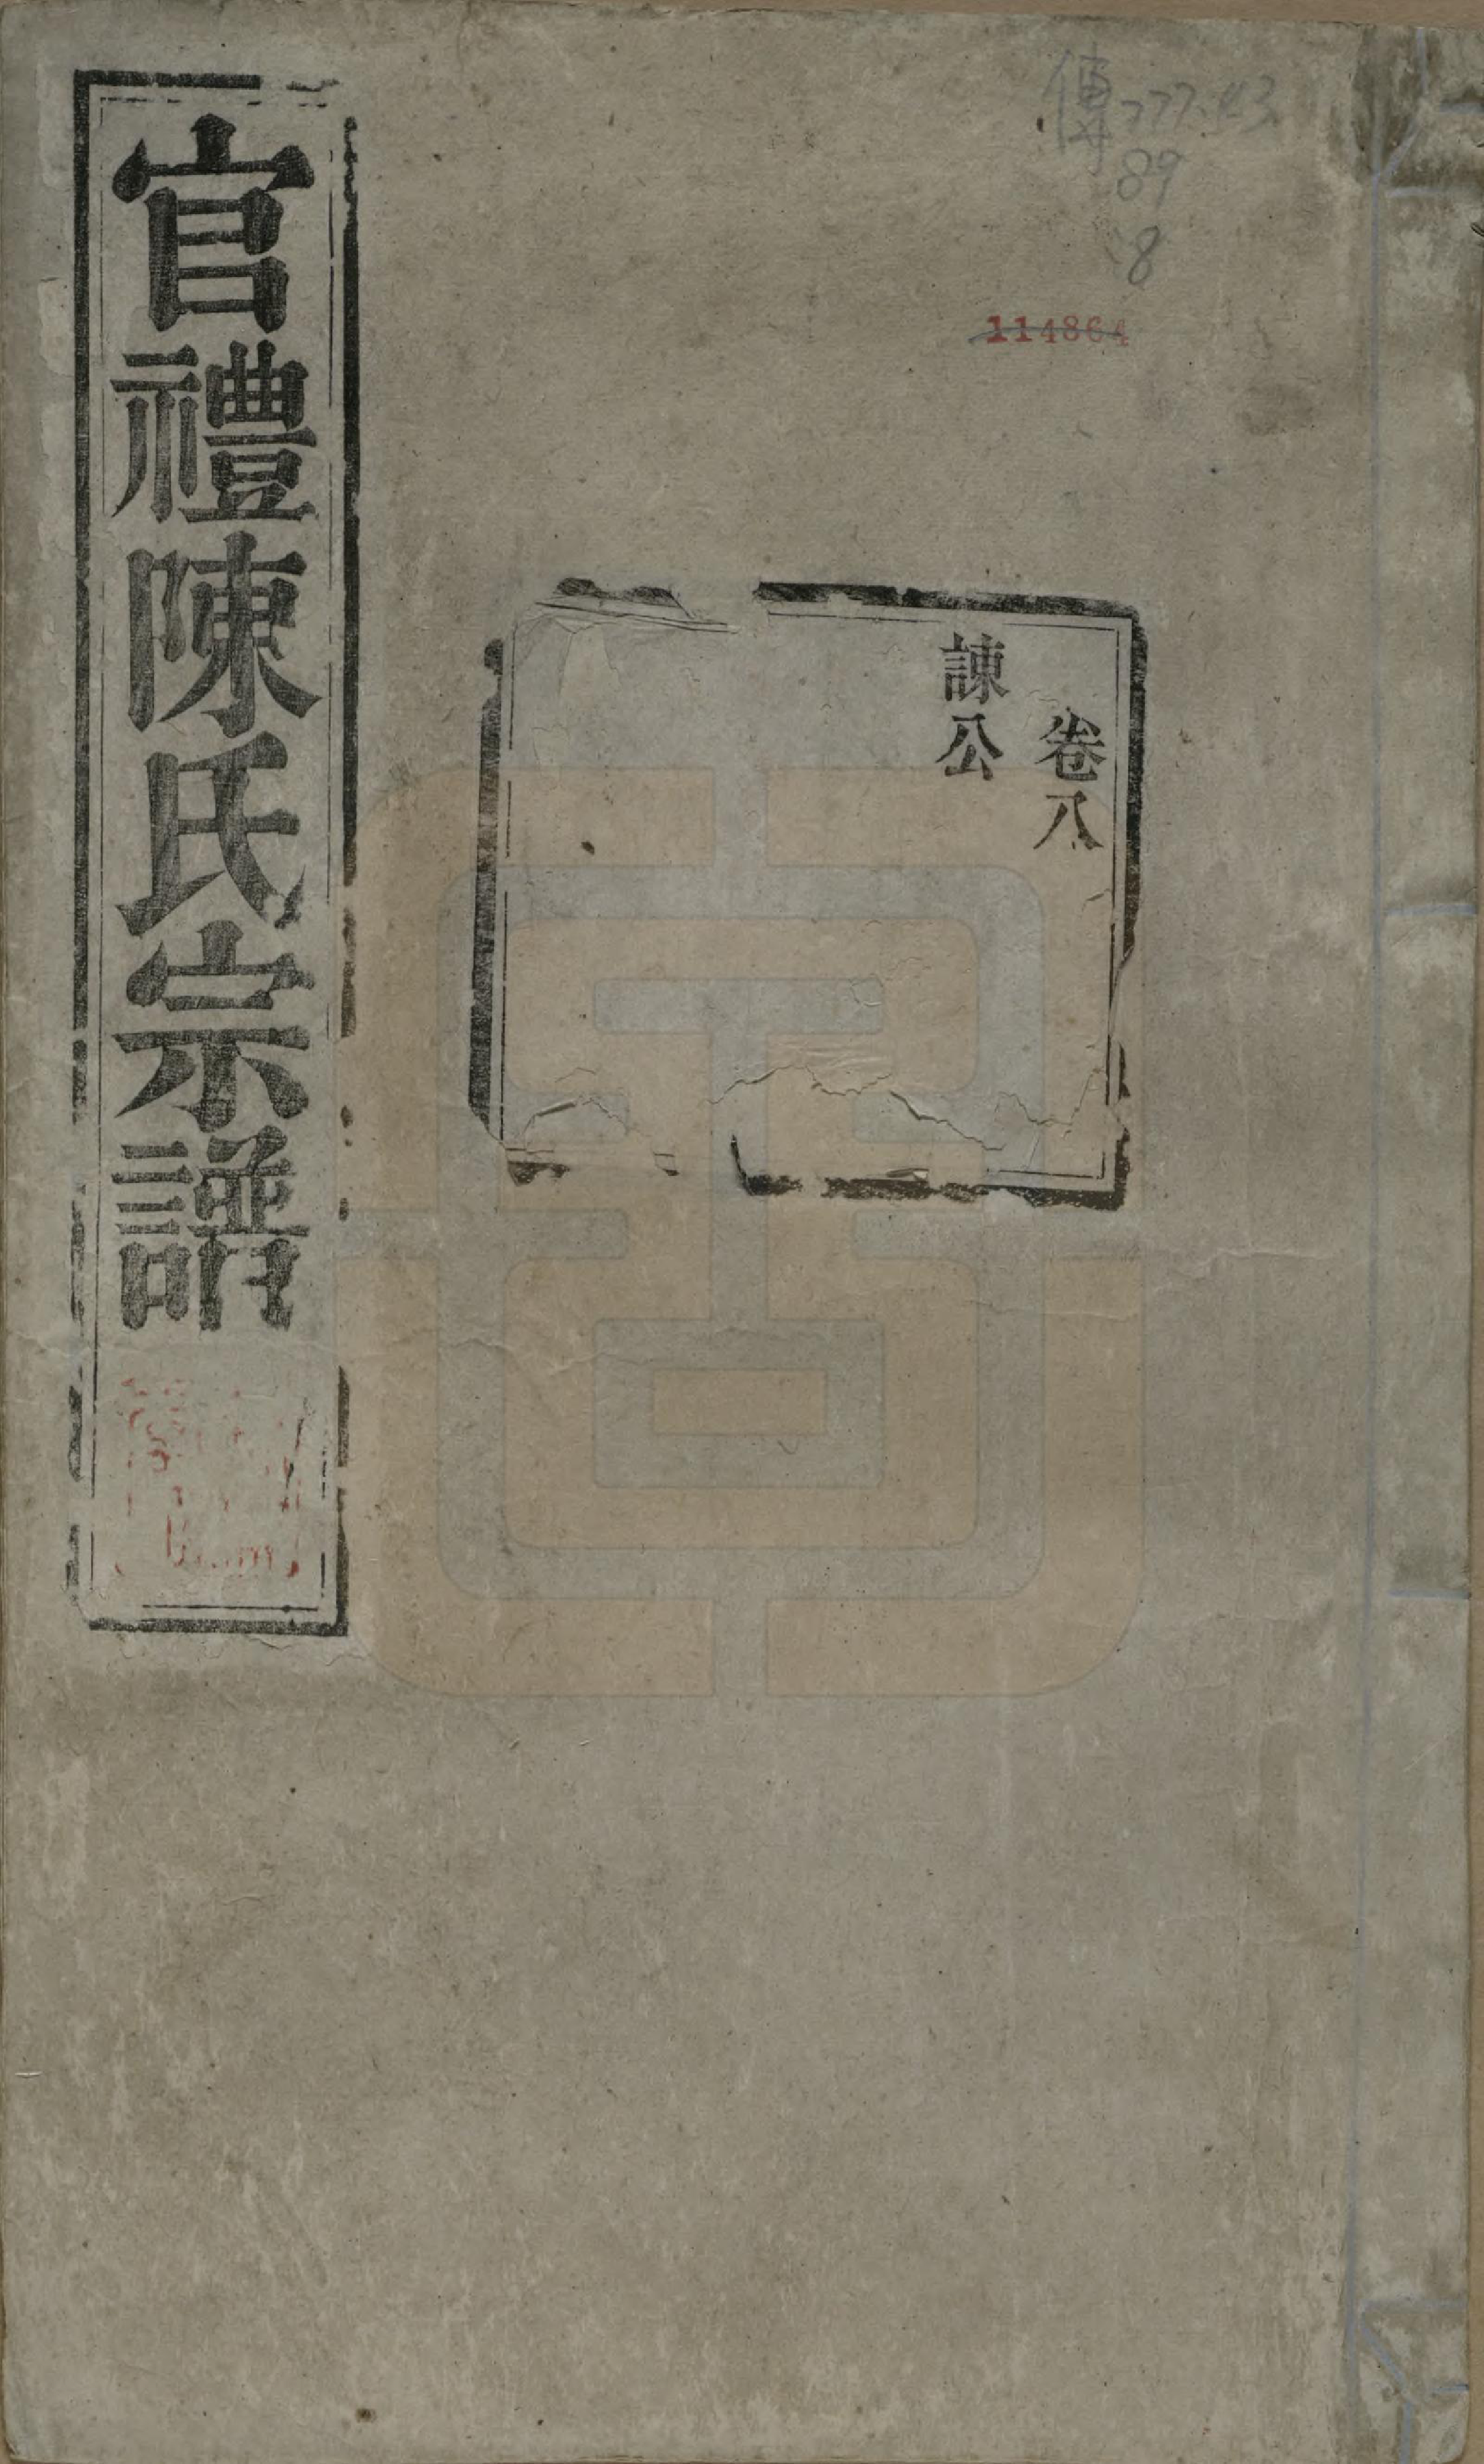 官禮陳氏宗譜
卷八
諫公
傳777.43
89
8
114864